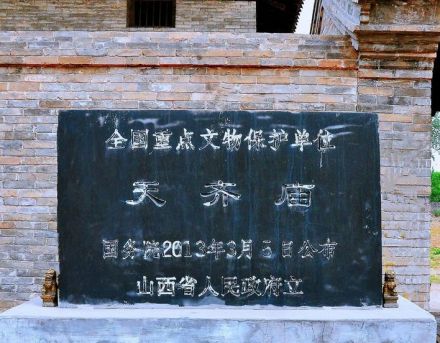 全国重点文物保护单位
天齐庙
国务院2013年3月5日公布
山西省人民政府立